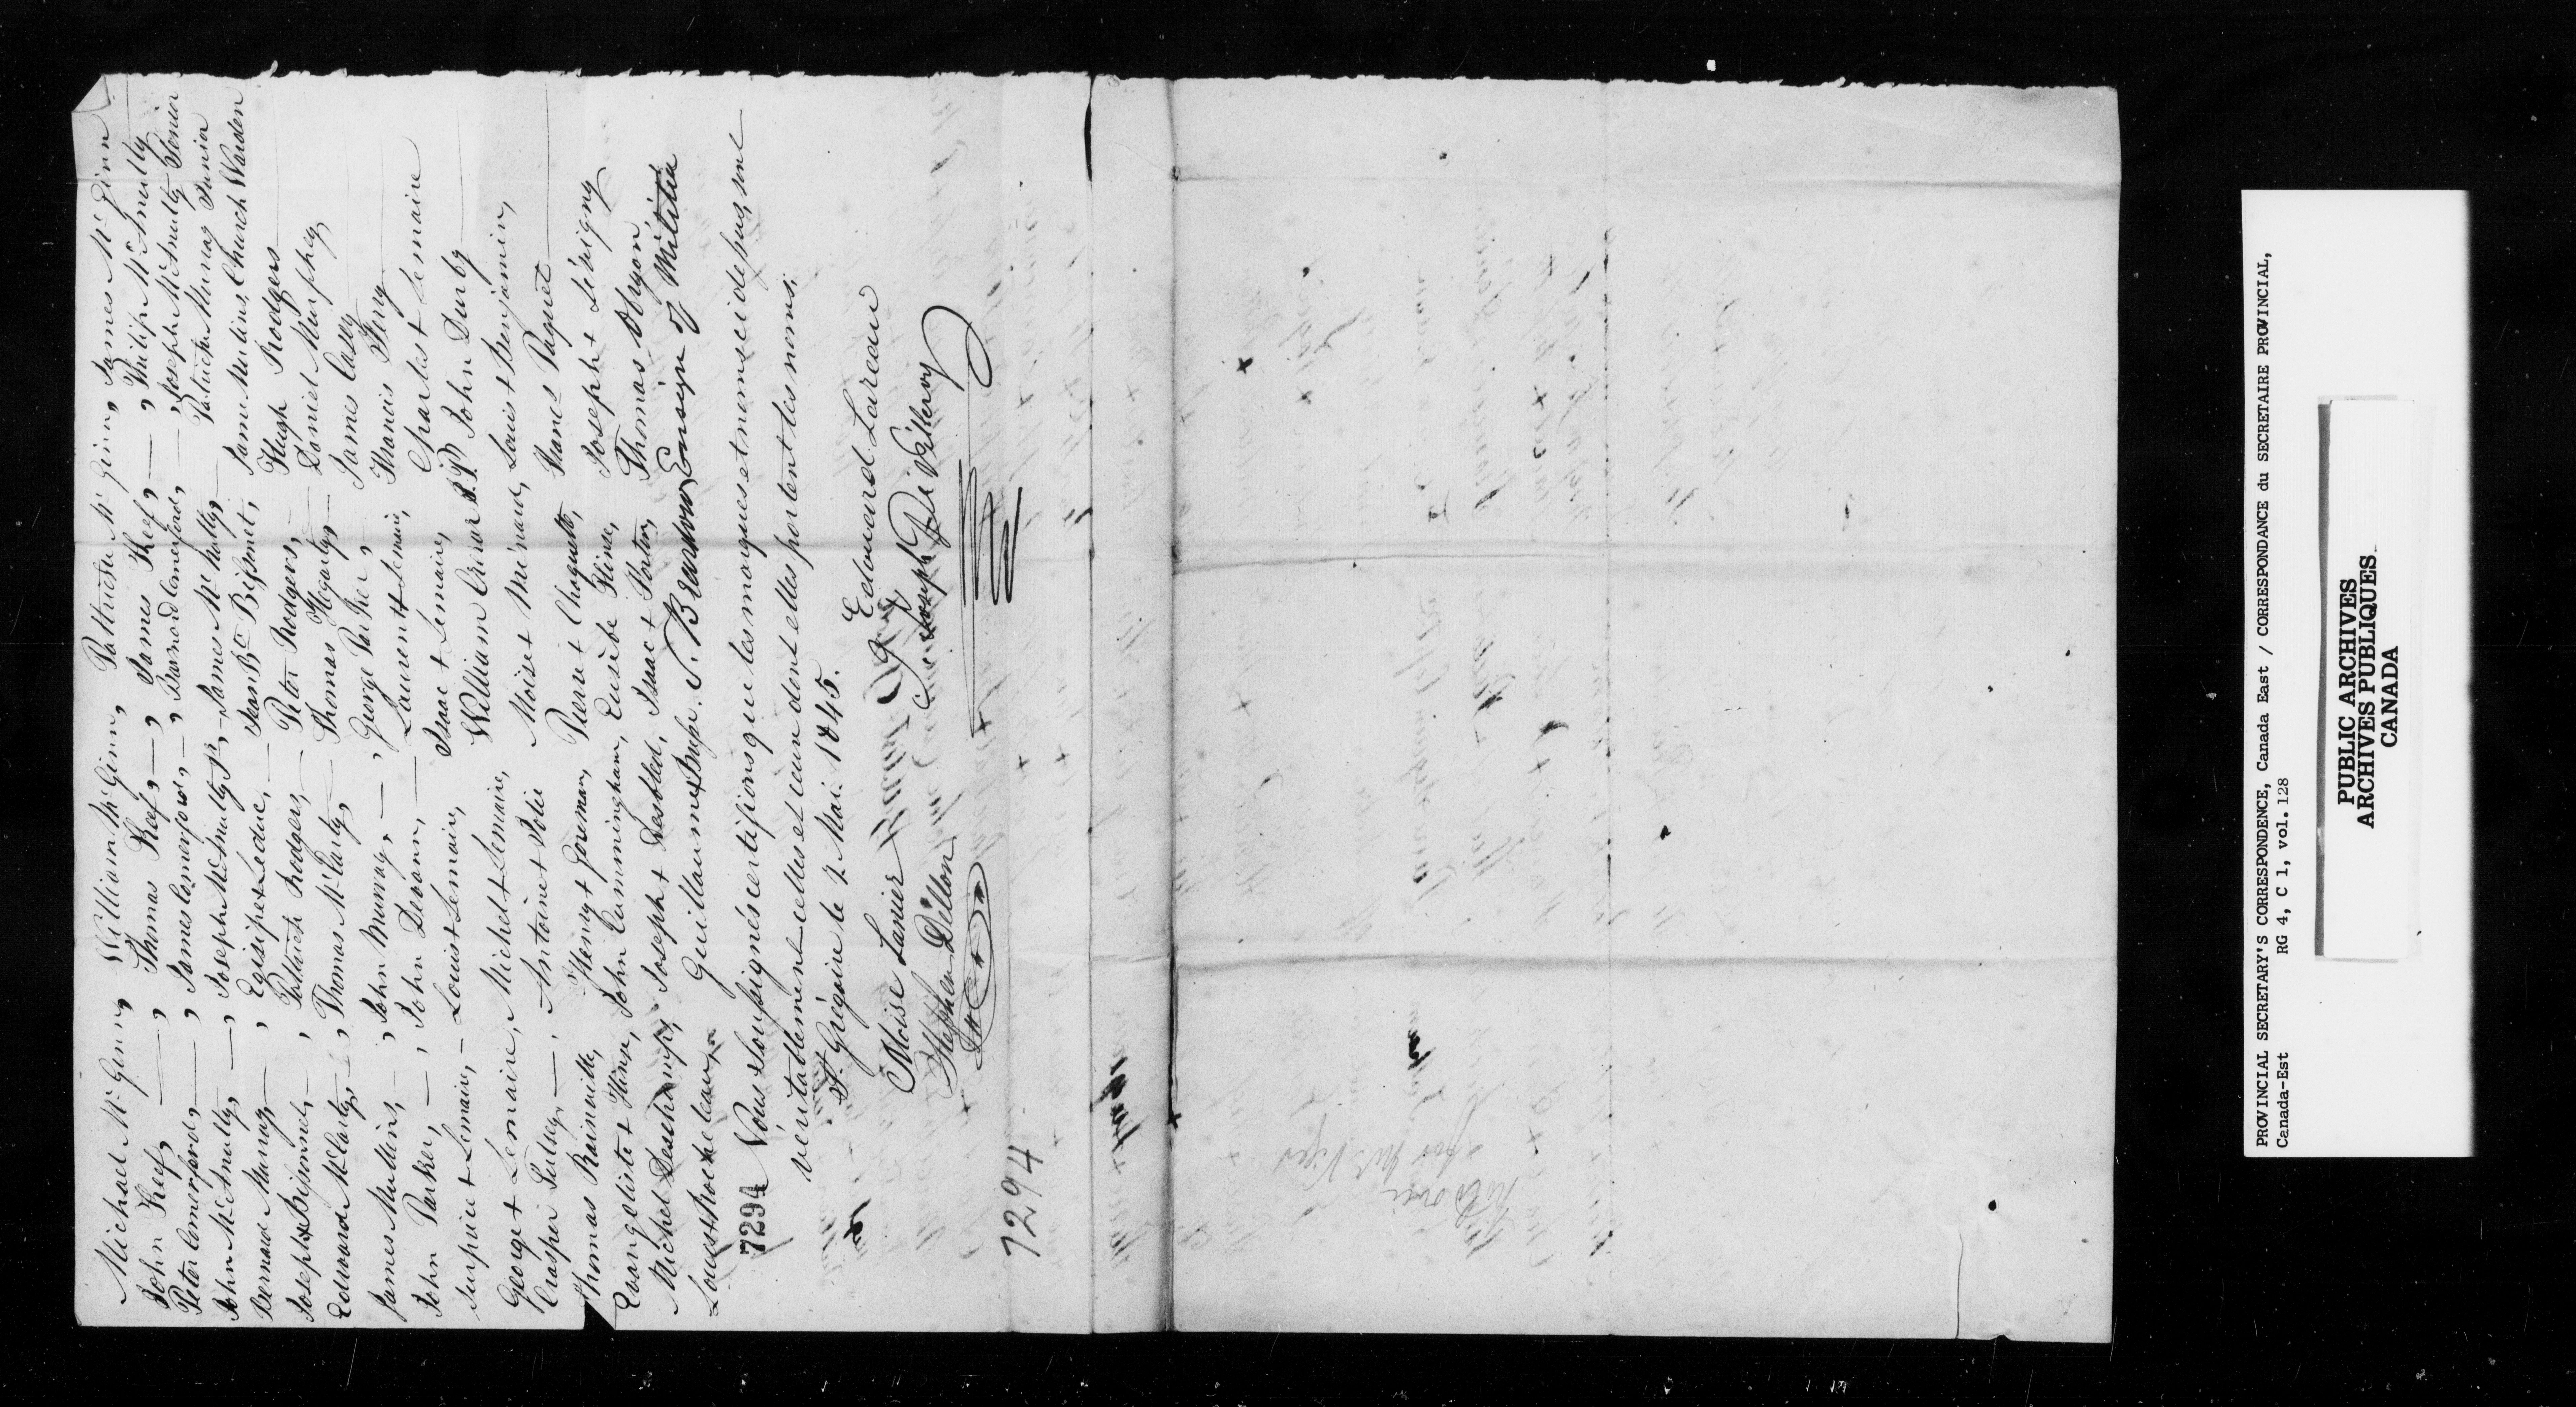 Michael McGinn, William McGinn, Pattrick McGinn, James McGinn
John Keef, — , Thomas Keef, — , James Keef, — , Philip McAnulty
Peter Comerford, — , James Comerford, — , Barnard Comerford, — , Joseph McAnulty Senior
John McAnulty, — , Joseph McAnulty Jr, — James McNally, Pattrick Murray Junior
Bernard Murray — , Egisipe + Leduc, — Jean Bte Bissonet, James Mullins, Church Warden
Joseph + Bissonnet, — , Pattrick Rodgers, — Peter Rodgers, — Hugh Rodgers
Edward McCarty, — , Thomas McCarty, — Thomas Hogarty, — Daniel Murphy,
James Mullins, — , John Murray, — , George Parker, James Casey
John Parker, — , John Devann, — Laurent + Lemaire, Francis Ferry
Surpuice + Lemaire, — Louis + Lemaire, Isaac + Lemaire, Charles + Lemaire
George + Lemaire, Michel + Lemaire, William Criar J.P. John Durby
Crasper Pelsey, — , Antoine + Jolie Moise + Ménard, Louis + Benjamin,
Thomas Rainville, Henry + Goreman, Pierre + Choquette, Francs Paquet
Evangeliste + Hines, John Cunningham, Eusèbe Hines, Joseph + Sévigny
Michel Deschamps, Joseph + Desbled, Isaac + Porlon, Thomas Obryon
Louis + Rocheleau, Guillaume + Dupr. S. Brandon, Ensign of Militia
7294 Nous Soussignés certifions que les marques et noms ci dessus, sont
véritablement celles et ceux dont elles portent les noms.
St. Grégoire le 2 Mai. 1845.
Moise Lanier Edouard Lareau
Stephen Dillon Joseph
7294
PROVINCIAL SECRETARY'S CORRESPONDENCE, Canada East / CORRESPONDANCE du SECRETAIRE PROVINCIAL,
Canada-Est RG 4, C 1, vol. 128
PUBLIC ARCHIVES
ARCHIVES PUBLIQUES
CANADA